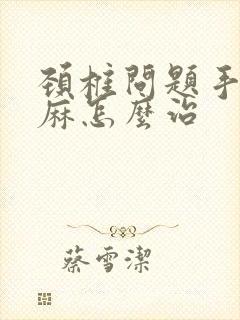 頚椎問題手
麻怎麼治
蔡雪潔